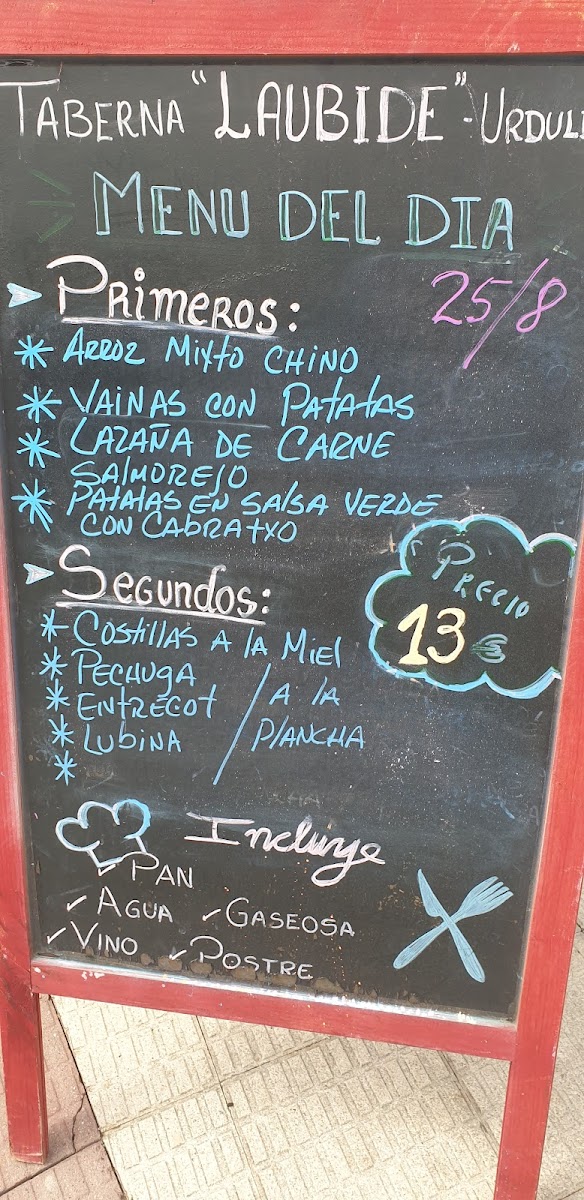 TABERNA "LAUBIDE" - URDULI
MENU DEL DIA
PRIMEROS:
25/8
* ARROZ MIXTO CHINO
* VAINAS CON PATATAS
* LAZAÑA DE CARNE
SALMOREJO
* PATATAS EN SALSA VERDE
CON CABRATXO
PRECIO
13 €
SEGUNDOS:
* COSTILLAS A LA MIEL
* PECHUGA
* ENTRECOT / A LA
* LUBINA / PLANCHA
*
Incluye
✓ PAN
✓ AGUA ✓ GASEOSA
✓ VINO ✓ POSTRE